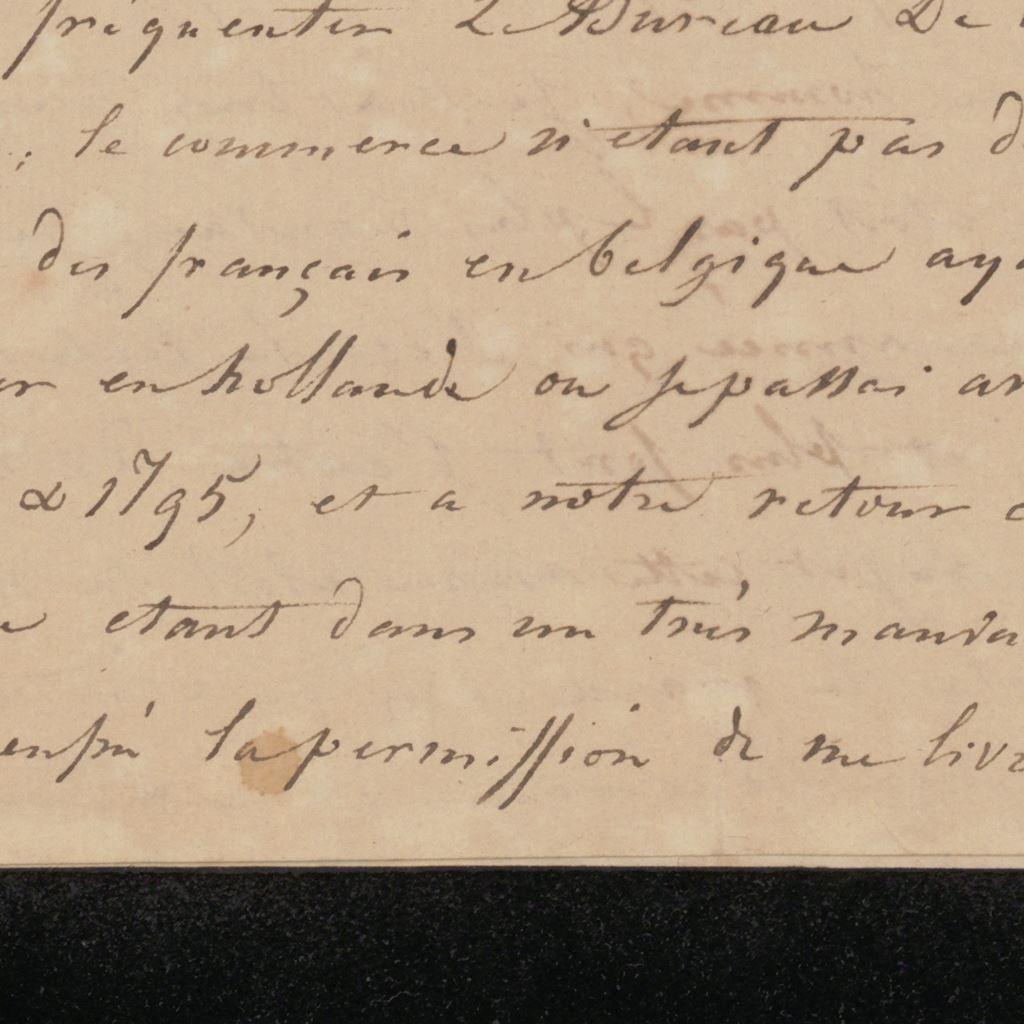 fréquenter Le Bureau De
; le commerce n'etant pas d
des français en belgique ay
er en hollande ou je passai av
& 1795, et a notre retour
etant dans un très mauva
enfin la permission de me livr